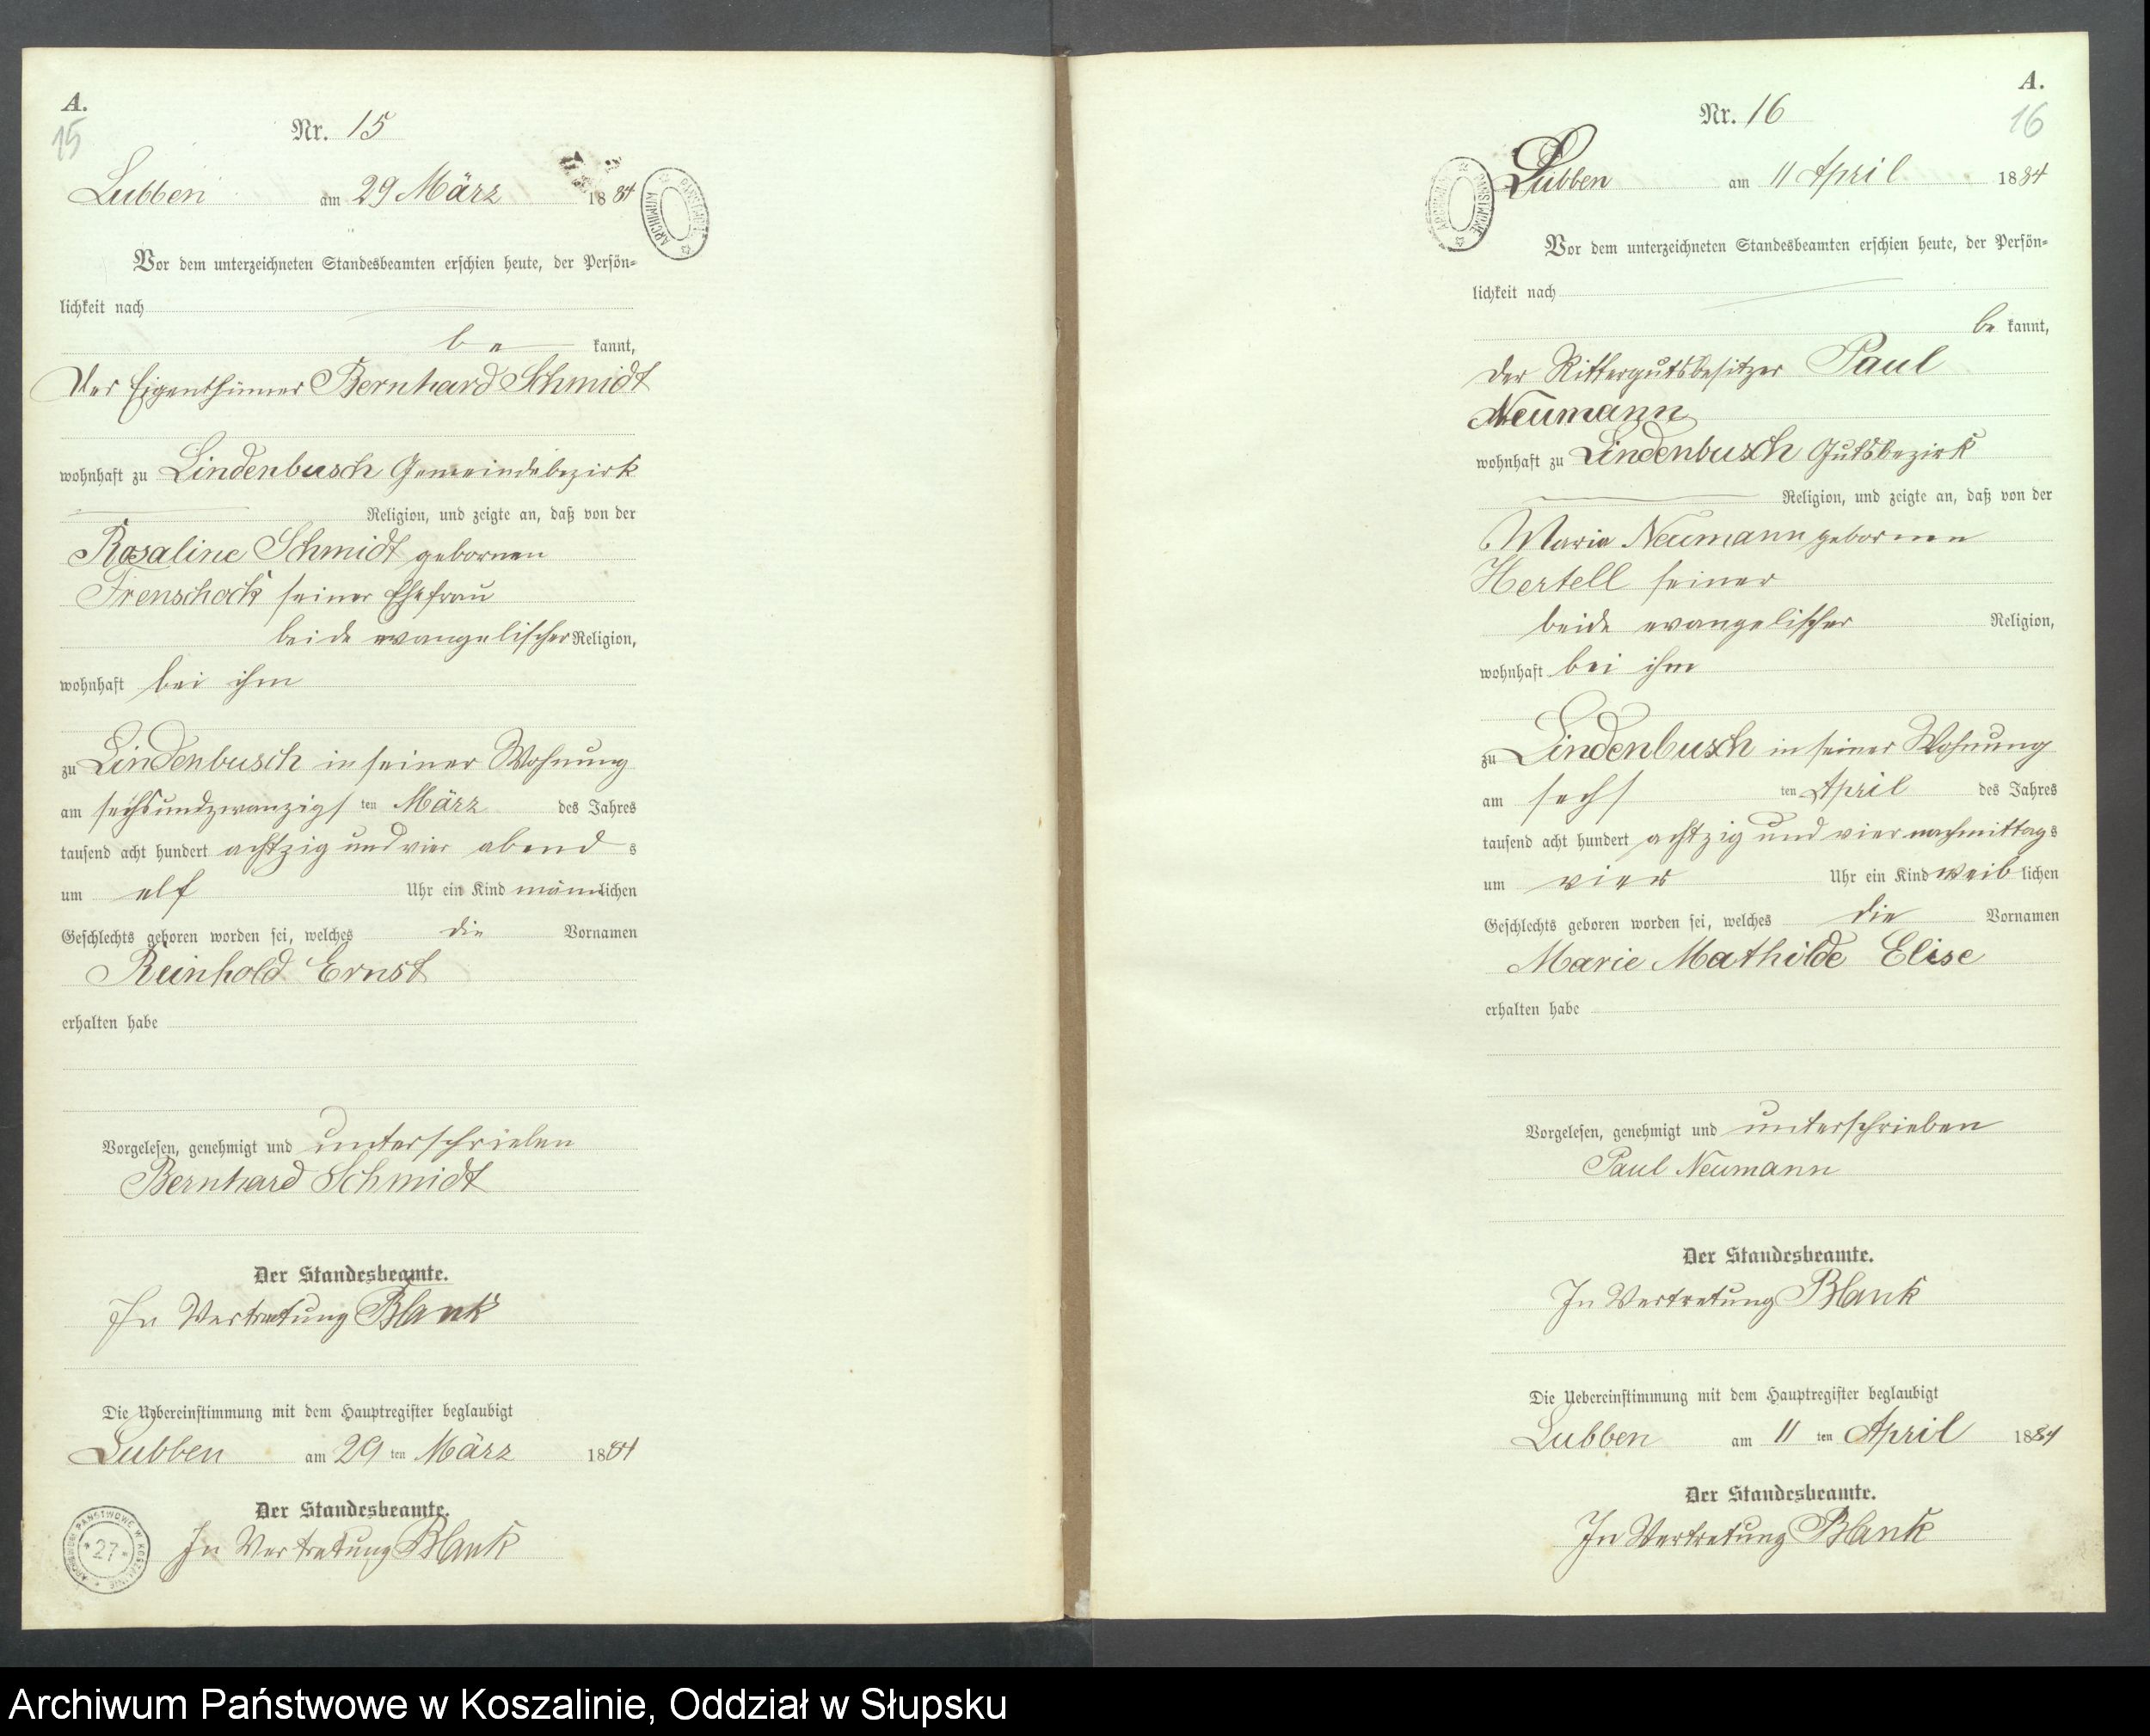 A.
15
Nr. 15
Lubben am 29 März 1884
ARCHIWUM PAŃSTWOWE
Vor dem unterzeichneten Standesbeamten erschien heute, der Persön-
lichkeit nach
be kannt,
Der Eigenthümer Bernhard Schmidt
wohnhaft zu Lindenbusch Gemeindebezirk
Religion, und zeigte an, daß von der
Rosaline Schmidt gebornen
Frenschock seiner Ehefrau
beide evangelischer Religion,
wohnhaft bei ihm
zu Lindenbusch in seiner Wohnung
am sechsundzwanzigsten März des Jahres
tausend acht hundert achtzig und vier abends
um elf Uhr ein Kind männlichen
Geschlechts geboren worden sei, welches die Vornamen
Reinhold Ernst
erhalten habe
Vorgelesen, genehmigt und unterschrieben
Bernhard Schmidt
Der Standesbeamte.
In Vertretung Blank
Die Uebereinstimmung mit dem Hauptregister beglaubigt
Lubben am 29 ten März 1884
Der Standesbeamte.
In Vertretung Blank
ARCHIWUM PAŃSTWOWE W KOSZALINIE
* 27 *
A.
16
Nr. 16
Lubben am 11 April 1884
ARCHIWUM PAŃSTWOWE
Vor dem unterzeichneten Standesbeamten erschien heute, der Persön-
lichkeit nach
be kannt,
der Rittergutsbesitzer Paul
Neumann
wohnhaft zu Lindenbusch Gutsbezirk
Religion, und zeigte an, daß von der
Maria Neumann gebornen
Hertell seiner
beide evangelischer Religion,
wohnhaft bei ihm
zu Lindenbusch in seiner Wohnung
am sechsten April des Jahres
tausend acht hundert achtzig und vier nachmittags
um vier Uhr ein Kind weiblichen
Geschlechts geboren worden sei, welches die Vornamen
Marie Mathilde Elise
erhalten habe
Vorgelesen, genehmigt und unterschrieben
Paul Neumann
Der Standesbeamte.
In Vertretung Blank
Die Uebereinstimmung mit dem Hauptregister beglaubigt
Lubben am 11 ten April 1884
Der Standesbeamte.
In Vertretung Blank
Archiwum Państwowe w Koszalinie, Oddział w Słupsku